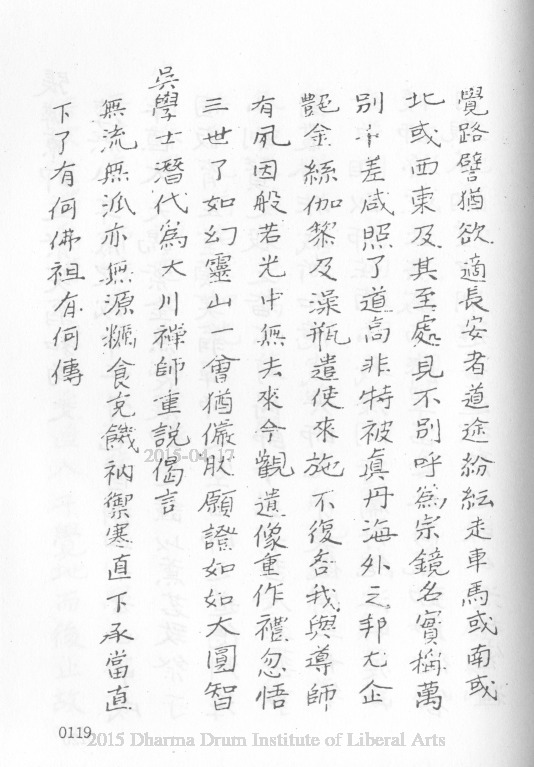 覺路譬猶欲適長安者道途紛紜走車馬或南或
北或西東及其至處見不別呼為宗鏡名實稱萬
別千差咸照了道高非特被真丹海外之邦尤企
艷金絲伽黎及澡瓶遣使來施不復吝我與導師
有夙因般若光中無去來今觀遺像重作禮忽悟
三世了如幻靈山一會猶儼肰願證如如大圓智
吳學士潛代為大川禪師重說偈言
無流無派亦無源糲食充饑衲禦寒直下承當直
下了有何佛祖有何傳
0119
2015-04-17
2015 Dharma Drum Institute of Liberal Arts